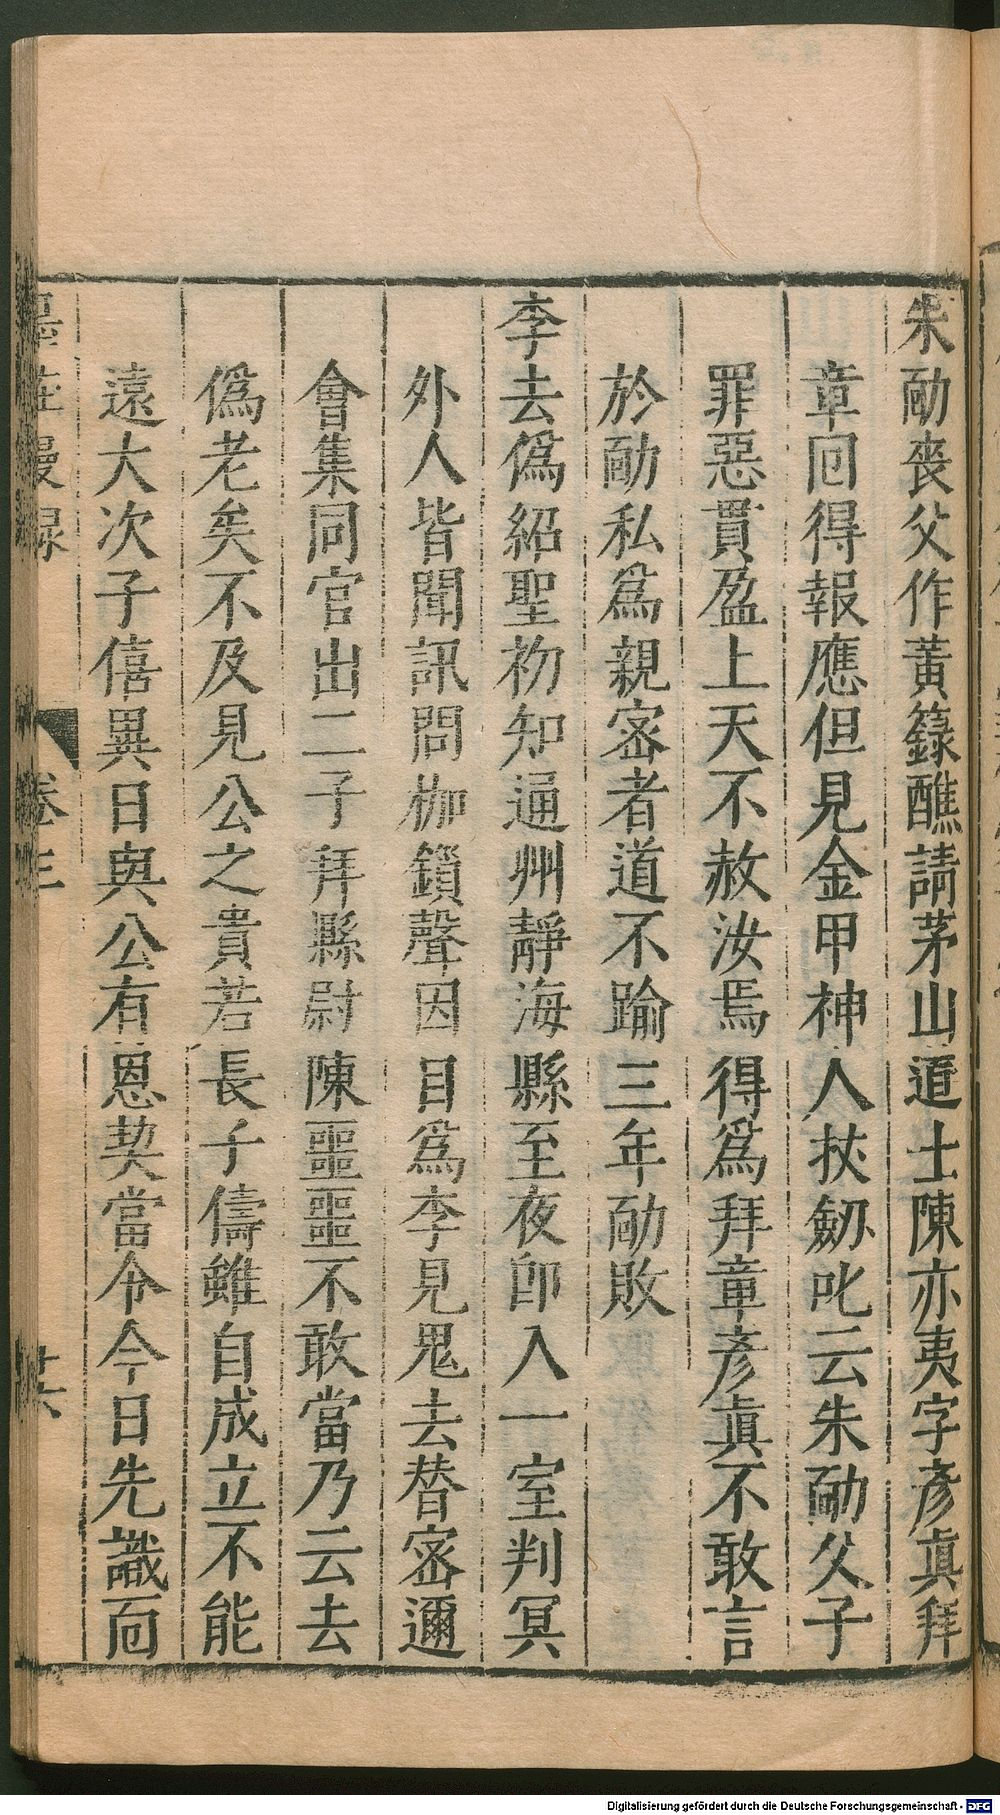 朱勔喪父作黃籙醮請茅山道士陳亦夷字彥眞拜
章回得報應但見金甲神人扙劒叱云朱勔父子
罪惡貫盈上天不赦汝焉得爲拜章彥眞不敢言
於勔私爲親宻者道不踰三年勔敗
李去僞紹聖初知通州靜海縣至夜卽入一室判冥
外人皆聞訊問枷鎖聲因目爲李見鬼去替宻邇
會集同官出二子拜縣尉陳噩噩不敢當乃云去
僞老矣不及見公之貴若長子儔雖自成立不能
遠大次子僖異日與公有恩契當令今日先識面
墨莊漫録
卷三
廿六
Digitalisierung gefördert durch die Deutsche Forschungsgemeinschaft - DFG